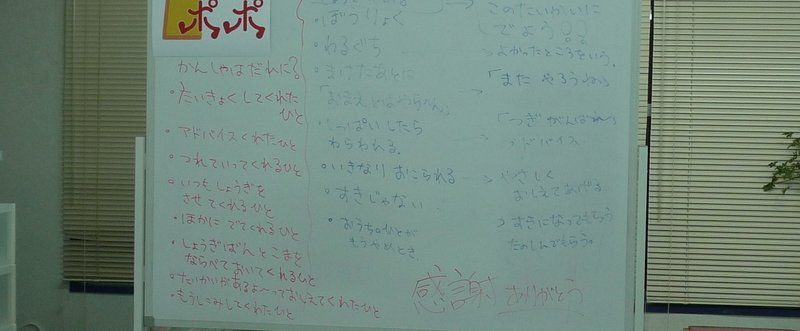 ポポ
かんしゃはだれにする
・たいきょくしてくれた
ひと
・アドバイスくれたひと
・つれていってくれるひと
・いつもしょうぎを
させてくれるひと
・ほかに でてくれるひと
・しょうぎばんとこまを
ならべておいてくれるひと
・たいかいがあるよ〜っておしえてくれたひと
・もうしこみしてくれたひと
・ぼうりょく
・わるぐち
・まけたあとに
・しっぱいしたら
わらわれる。
・いきなり おこられる
・すきじゃない
・おうちのひとが
もうやめとき。
このたいかいに
でよう!
よかったところをいう。
「また やろうね」
「つぎ がんばれ〜」
アドバイス
やさしく
おしえてあげる
すきになってもらう
たのしんでもらう。
感謝 ありがとう